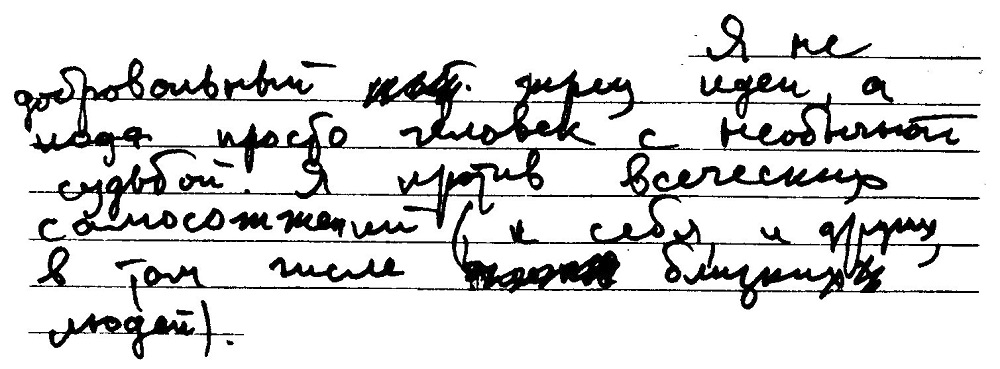 Я не
добровольный жрец идеи, а
просто человек с необычной
судьбой. Я против всяческих
самосожжений (и себя, и других,
в том числе близких
людей).